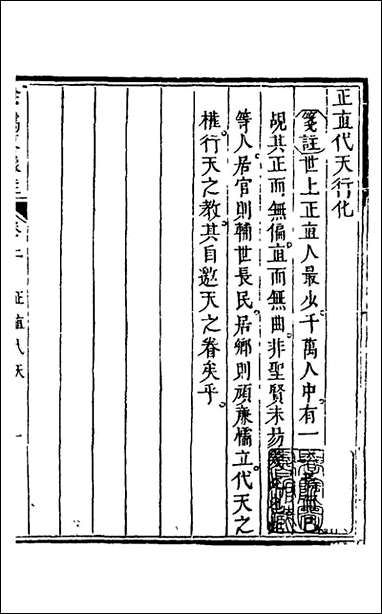 正直代天行化
箋註世上正直人最少千萬人中有一
規其正而無偏直而無曲非聖賢未易
等人居官則輔世長民居鄉則頑廉懦立代天之
權行天之教其自邀天之眷矣乎
正直代天